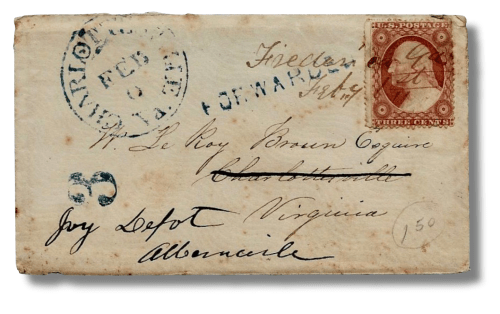 CHARLOTTESVILLE VA.
FEB
6
FORWARDED
Feb 7
U.S. POSTAGE
THREE CENTS
W. Le Roy Broun Esquire
Charlottesville
Virginia
3
Ivy Depot
Albemarle
150